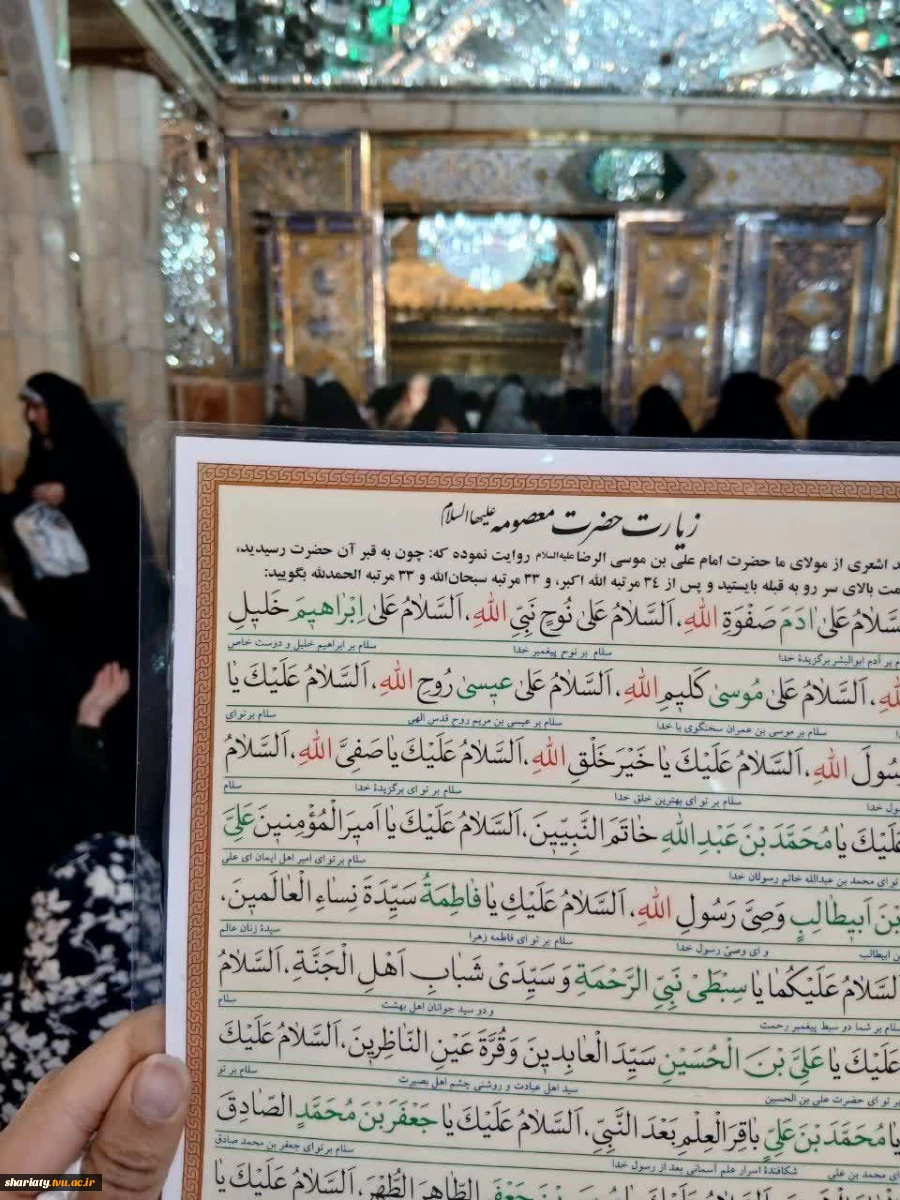 زیارت حضرت معصومه علیهاالسلام
اشعری از مولای ما حضرت امام علی بن موسی الرضا علیه‌السلام روایت نموده که: چون به قبر آن حضرت رسیدید،
بالای سر رو به قبله بایستید و پس از ٣٤ مرتبه الله اکبر، و ٣٣ مرتبه سبحان‌الله و ٣٣ مرتبه الحمدلله بگویید:
عَلیٰ ادَمَ صَفْوَةِ اللهِ، اَلسَّلامُ عَلیٰ نُوحٍ نَبِیِّ اللهِ، اَلسَّلامُ عَلیٰ اِبْراهیمَ خَلیلِ
بر آدم ابوالبشر برگزیدهٔ خدا سلام بر نوح پیغمبر خدا سلام بر ابراهیم خلیل و دوست خاص
اَلسَّلامُ عَلیٰ مُوسیٰ کَلیمِ اللهِ، اَلسَّلامُ عَلیٰ عیسیٰ رُوحِ اللهِ، اَلسَّلامُ عَلَیْكَ یا
سلام بر موسی بن عمران سخنگوی با خدا سلام بر عیسی بن مریم روح قدس الهی سلام بر تو ای
اللهِ، اَلسَّلامُ عَلَیْكَ یا خَیْرَ خَلْقِ اللهِ، اَلسَّلامُ عَلَیْكَ یا صَفِیَّ اللهِ، اَلسَّلامُ
خدا سلام بر تو ای بهترین خلق خدا سلام بر تو ای برگزیدهٔ خدا سلام
عَلَیْكَ یا مُحَمَّدَ بْنَ عَبْدِ اللهِ خاتَمَ النَّبِیّینَ، اَلسَّلامُ عَلَیْكَ یا اَمیرَ الْمُؤْمِنینَ عَلِیَّ
تو ای محمد بن عبدالله خاتم رسولان خدا سلام بر تو ای امیر اهل ایمان ای علی
بْنَ اَبیطالِبٍ وَصِیَّ رَسُولِ اللهِ، اَلسَّلامُ عَلَیْكِ یا فاطِمَةُ سَیِّدَةَ نِساءِ الْعالَمینَ،
بن ابیطالب و ای وصیّ رسول خدا سلام بر تو ای فاطمه زهرا سیدهٔ زنان عالم
اَلسَّلامُ عَلَیْکُما یا سِبْطَیْ نَبِیِّ الرَّحْمَةِ وَ سَیِّدَیْ شَبابِ اَهْلِ الْجَنَّةِ، اَلسَّلامُ
سلام بر شما دو سبط پیغمبر رحمت و دو سید جوانان اهل بهشت سلام
عَلَیْكَ یا عَلِیَّ بْنَ الْحُسَیْنِ سَیِّدَ الْعابِدینَ وَ قُرَّةَ عَیْنِ النّاظِرینَ، اَلسَّلامُ عَلَیْكَ
بر تو ای حضرت علی بن الحسین سید اهل عبادت و روشنی چشم اهل بصیرت سلام بر تو
یا مُحَمَّدَ بْنَ عَلِیٍّ باقِرَ الْعِلْمِ بَعْدَ النَّبِیِّ، اَلسَّلامُ عَلَیْكَ یا جَعْفَرَ بْنَ مُحَمَّدٍ الصّادِقَ
ای محمد بن علی شکافندهٔ اسرار علم آسمانی بعد از رسول خدا سلام بر تو ای جعفر بن محمد صادق
جَعْفَرٍ الطّاهِرَ الطُّهْرَ، اَلسَّلامُ عَلَیْكَ یا
shariaty.tvu.ac.ir